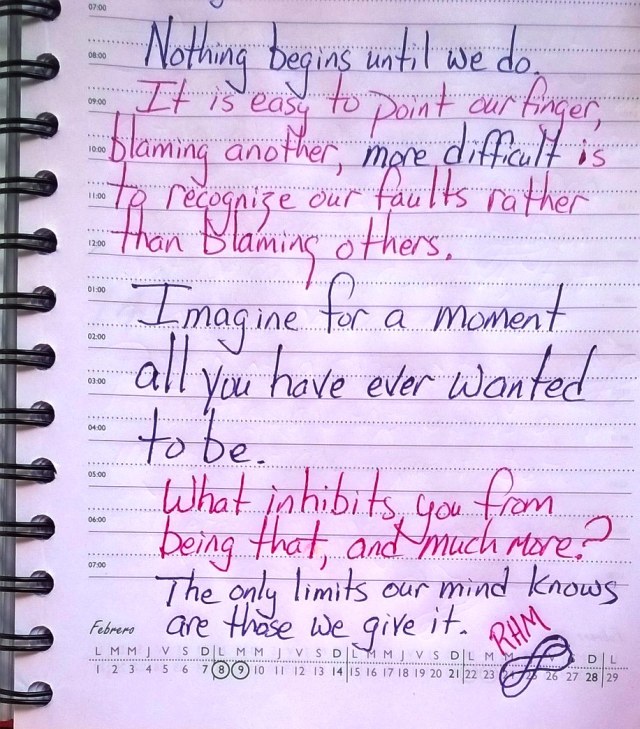 07:00
Nothing begins until we do.
08:00
It is easy to point our finger,
09:00
10:00 blaming another, more difficult is
11:00 to recognize our faults rather
12:00 than blaming others.
01:00
Imagine for a moment
02:00
03:00 all you have ever wanted
04:00
to be.
05:00
What inhibits you from
06:00
being that, and much more?
07:00
The only limits our mind knows
are those we give it.
RHM
Febrero
L M M J V S D L M M J V S D L M M J V S D L M D L
1 2 3 4 5 6 7 8 9 10 11 12 13 14 15 16 17 18 19 20 21 22 23 26 27 28 29